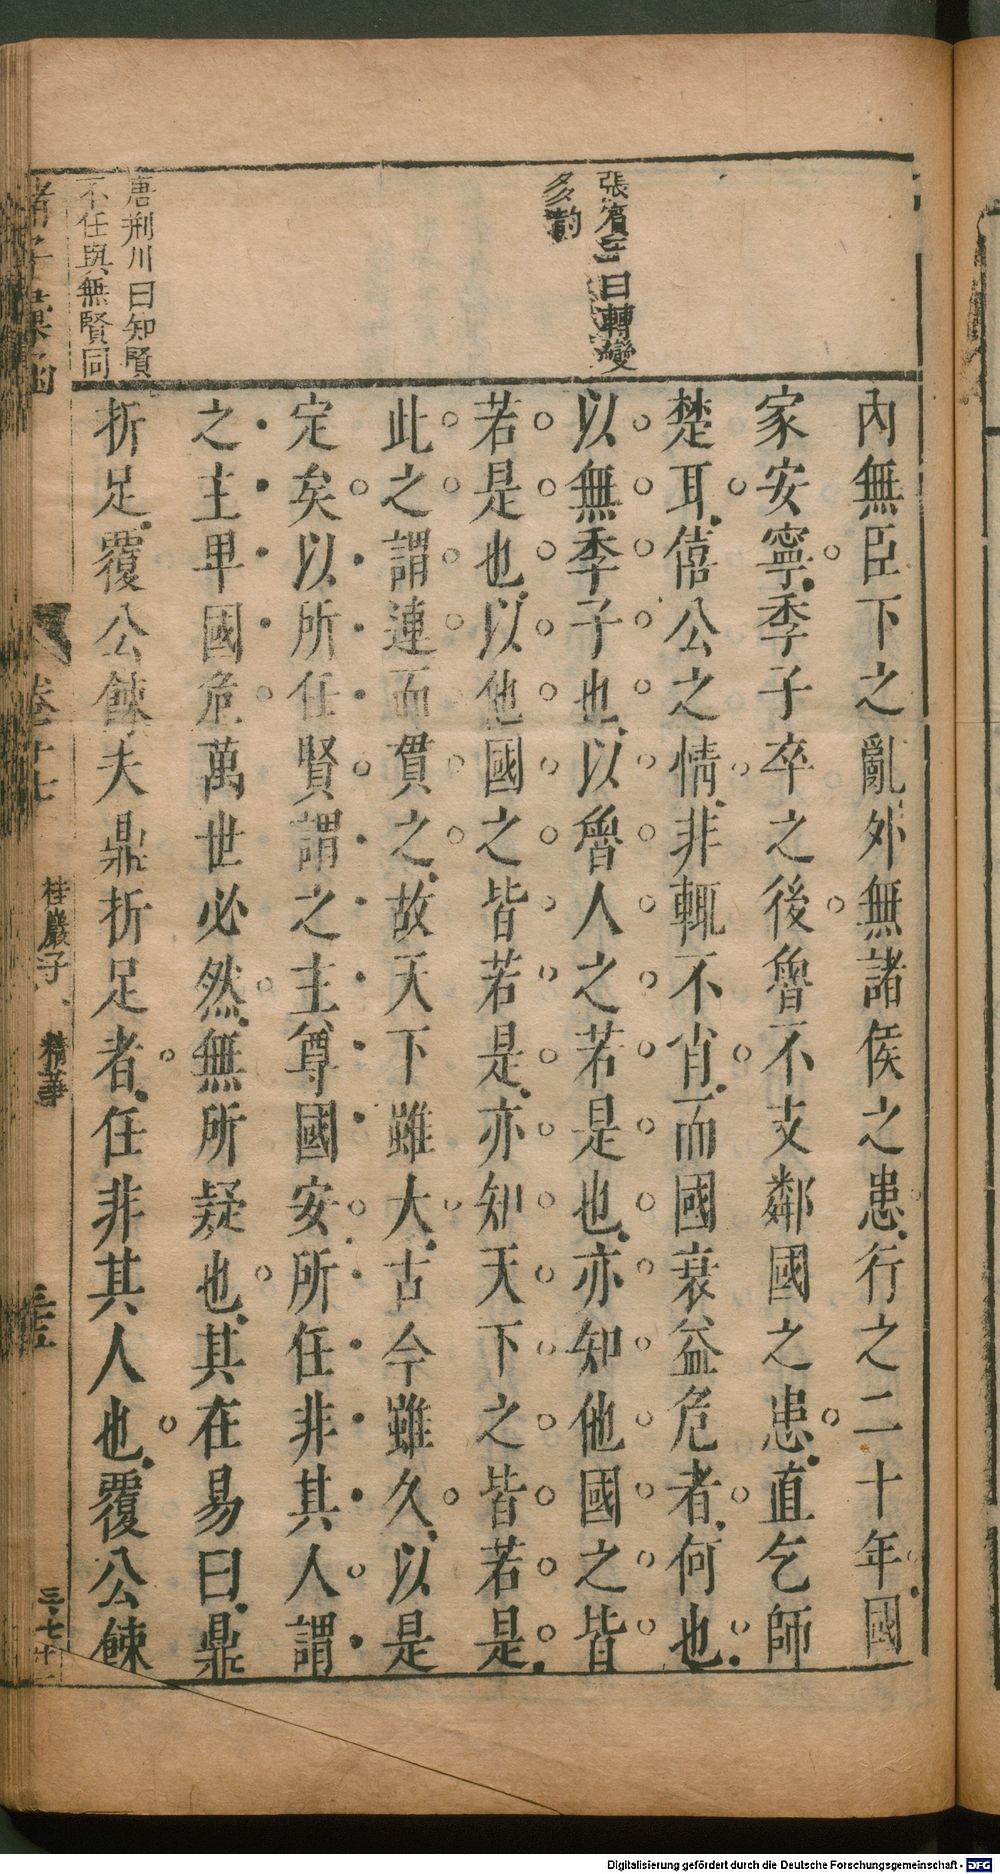 張賓王曰轉變
多韵
唐荆川曰知賢
不任與無賢同
內無臣下之亂外無諸侯之患行之二十年國
家安寧季子卒之後魯不支鄰國之患直乞師
楚耳僖公之情非輒不肖而國衰益危者何也
以無季子也以魯人之若是也亦知他國之皆
若是也以他國之皆若是亦知天下之皆若是
此之謂連而貫之故天下雖大古今雖久以是
定矣以所任賢謂之主尊國安所任非其人謂
之主卑國危萬世必然無所疑也其在易曰鼎
折足覆公餗夫鼎折足者任非其人也覆公餗
諸子彙函
卷十七
桂巖子 精華
三五
Digitalisierung gefördert durch die Deutsche Forschungsgemeinschaft - DFG